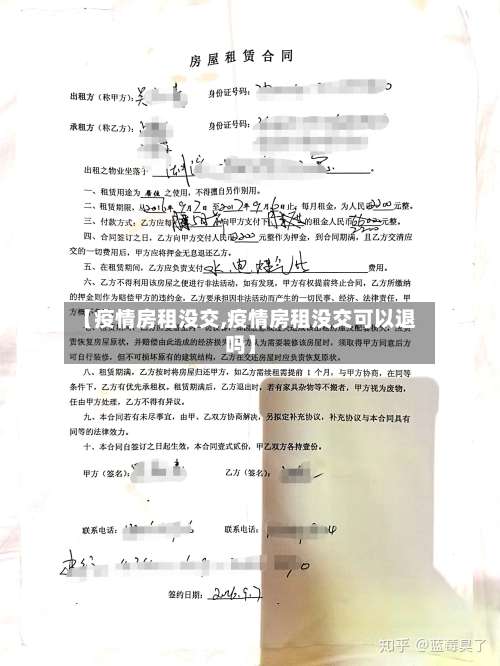 房屋租赁合同
出租方（称甲方）：吴 身份证号码：
承租方（称乙方）： 身份证号码：
出租之物业坐落于
一、租赁用途为 居住 之使用，不得擅自另作别用。
二、租赁期限，从2016年9月7日 至2017年9月6日止，每月租金，为人民币2200元整。
三、付款方式，乙方应每 向甲方支付下 的租金人民币 元整。
四、合同签订之日，乙方向甲方交付人民币2200元整作为押金，到合同期满，且乙方交清应
交的一切费用后，甲方应将押金无息退还乙方。
五、在租赁期间，乙方应负责支付 水 电 燃气 费用。
六、乙方不得利用该房屋之便进行非法活动，如有发现，甲方有权提前终止合同，乙方所缴纳
的押金则作为赔偿甲方的违约金，乙方要承担因非法活动而产生的一切民事、经济、法律责任，甲
方概
【疫情房租没交,疫情房租没交可以退
吗】
责恢复房屋原状，并赔偿由此造成的经济损失
方可自行装修，但不可损坏原有的建筑结构，乙方在交还房屋时应负责恢复原状。
八、租赁期满，乙方按时将房屋归还甲方，如乙方需续租需提前 1 个月，与甲方协商，在同等
条件下，乙方有优先承租权。租赁期满后，乙方退出时，若有家具杂物等不搬者，甲方视为废物，
任由甲方处理，乙方不得有异议。
九、本合同若有未尽事宜，由甲、乙双方协商解决，另拟定补充协议，补充协议与本合同具有
同等的法律效力。
十、本合同自签订之日起生效，本合同壹式贰份，甲乙双方各持壹份。
甲方（签名）： 乙方（签名）：
联系电话： 联系电话：
签约日期：2016.9.7
知乎 @蓝莓臭了